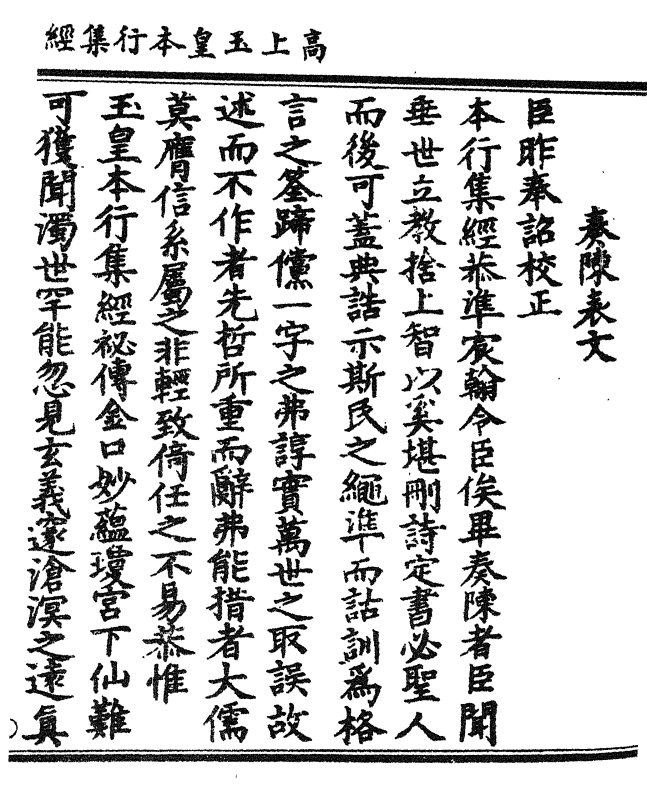 高上玉皇本行集經
奏陳表文
臣昨奉詔校正
本行集經恭準宸翰令臣俟畢奏陳者臣聞
垂世立教捨上智以奚堪刪詩定書必聖人
而後可蓋典誥示斯民之繩準而詁訓爲格
言之筌蹄儻一字之弗諄實萬世之取誤故
述而不作者先哲所重而辭弗能措者大儒
莫膺信系屬之非輕致倚任之不易恭惟
玉皇本行集經祕傳金口妙蘊瓊宮下仙難
可獲聞濁世罕能忽見玄義邃滄溟之遠眞